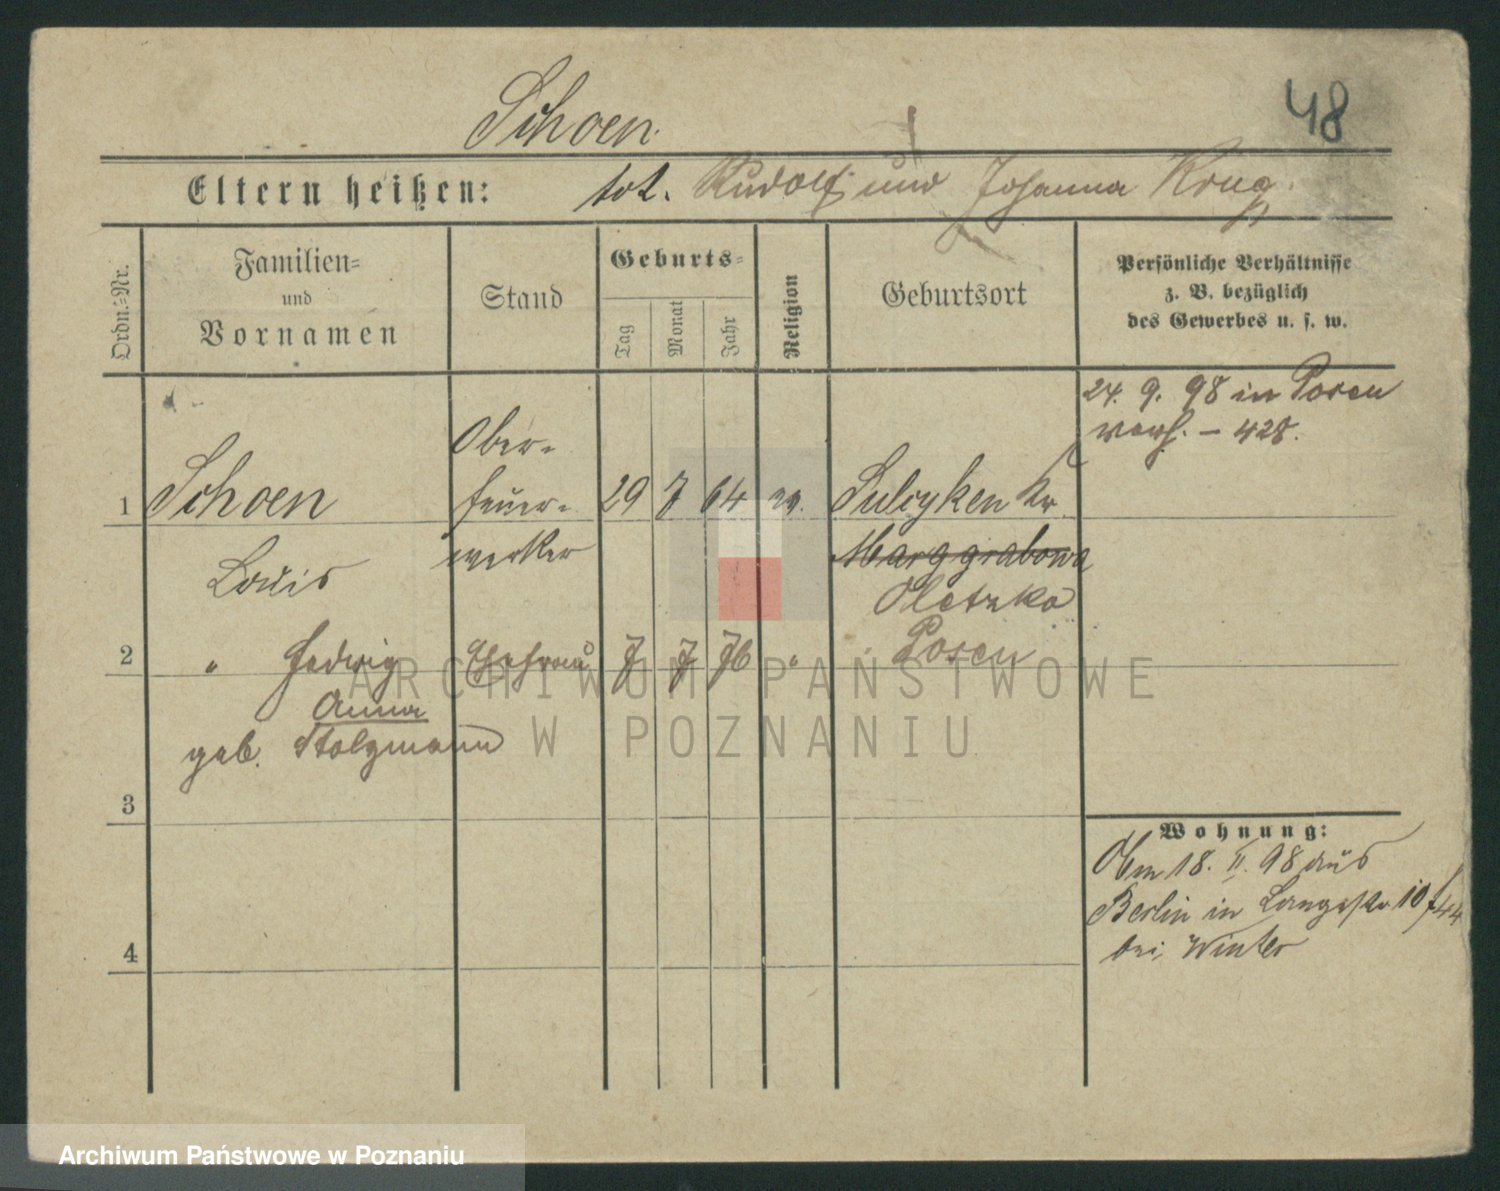 48
Schoen.
Eltern heißen: tot. Rudolf und Johanna Krug.
Ordn.=Nr.
Familien=
und
Vornamen
Stand
Geburts=
Tag
Monat
Jahr
Religion
Geburtsort
Persönliche Verhältnisse
z. B. bezüglich
des Gewerbes u. s. w.
24. 9. 98 in Posen
verh. – 428.
1 Schoen Ober-
feuer-
werker 29 7 64 ev. Sulcyken Kr
Louis Marggrabowa
Oletzko
2 " Hedwig Ehefrau 7 7 76 " Posen
Anna
geb. Stolzmann
3
4
Wohnung:
18. II. 98 aus
Berlin in Langestr 10
bei Winter
ARCHIWUM PAŃSTWOWE
W POZNANIU
Archiwum Państwowe w Poznaniu